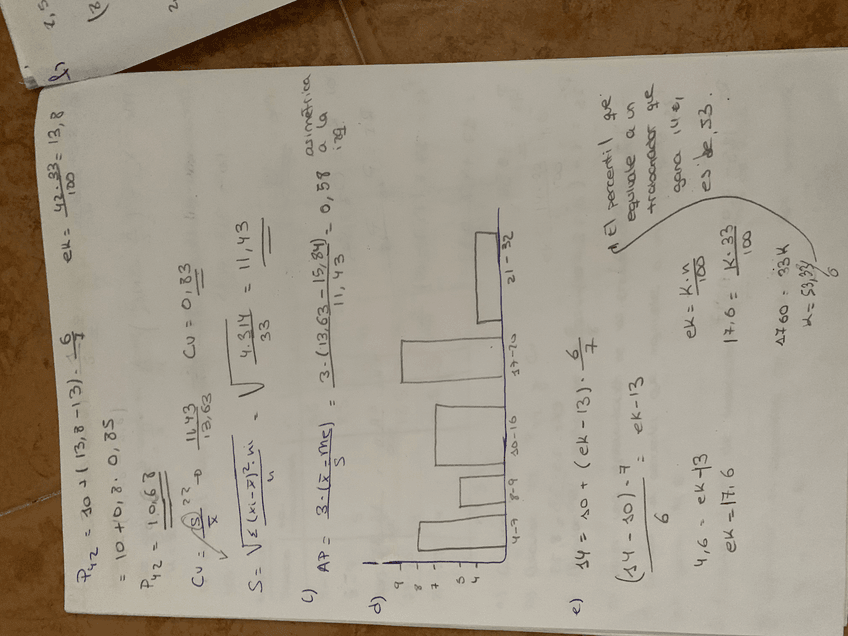 P42 = 10 + (13,8 - 13) · 6/7    ek = 42·33/100 = 13,8
= 10 + 0,8 · 0,85
P42 = 10,68
CV = |S|/x̄ → 11,43/13,63    CV = 0,83
S = √(Σ(xi - x̄)²·ni / n) = √(4.314/33) = 11,43
c) AP = 3·(x̄ - Me)/S = 3·(13,63 - 15,84)/11,43 = 0,58 asimétrica
a la
izq.
d)
9
8
7
5
4
4-7 8-9 10-16 17-20 21-32
e) 14 = 10 + (ek - 13) · 6/7
(14 - 10)·7/6 = ek - 13
4,6 = ek - 13
ek = 17,6
ek = k·n/100
17,6 = k·33/100
1760 = 33k
k = 53,33
El percentil que
equivale a un
trabajador que
gana 14€,
es 53.